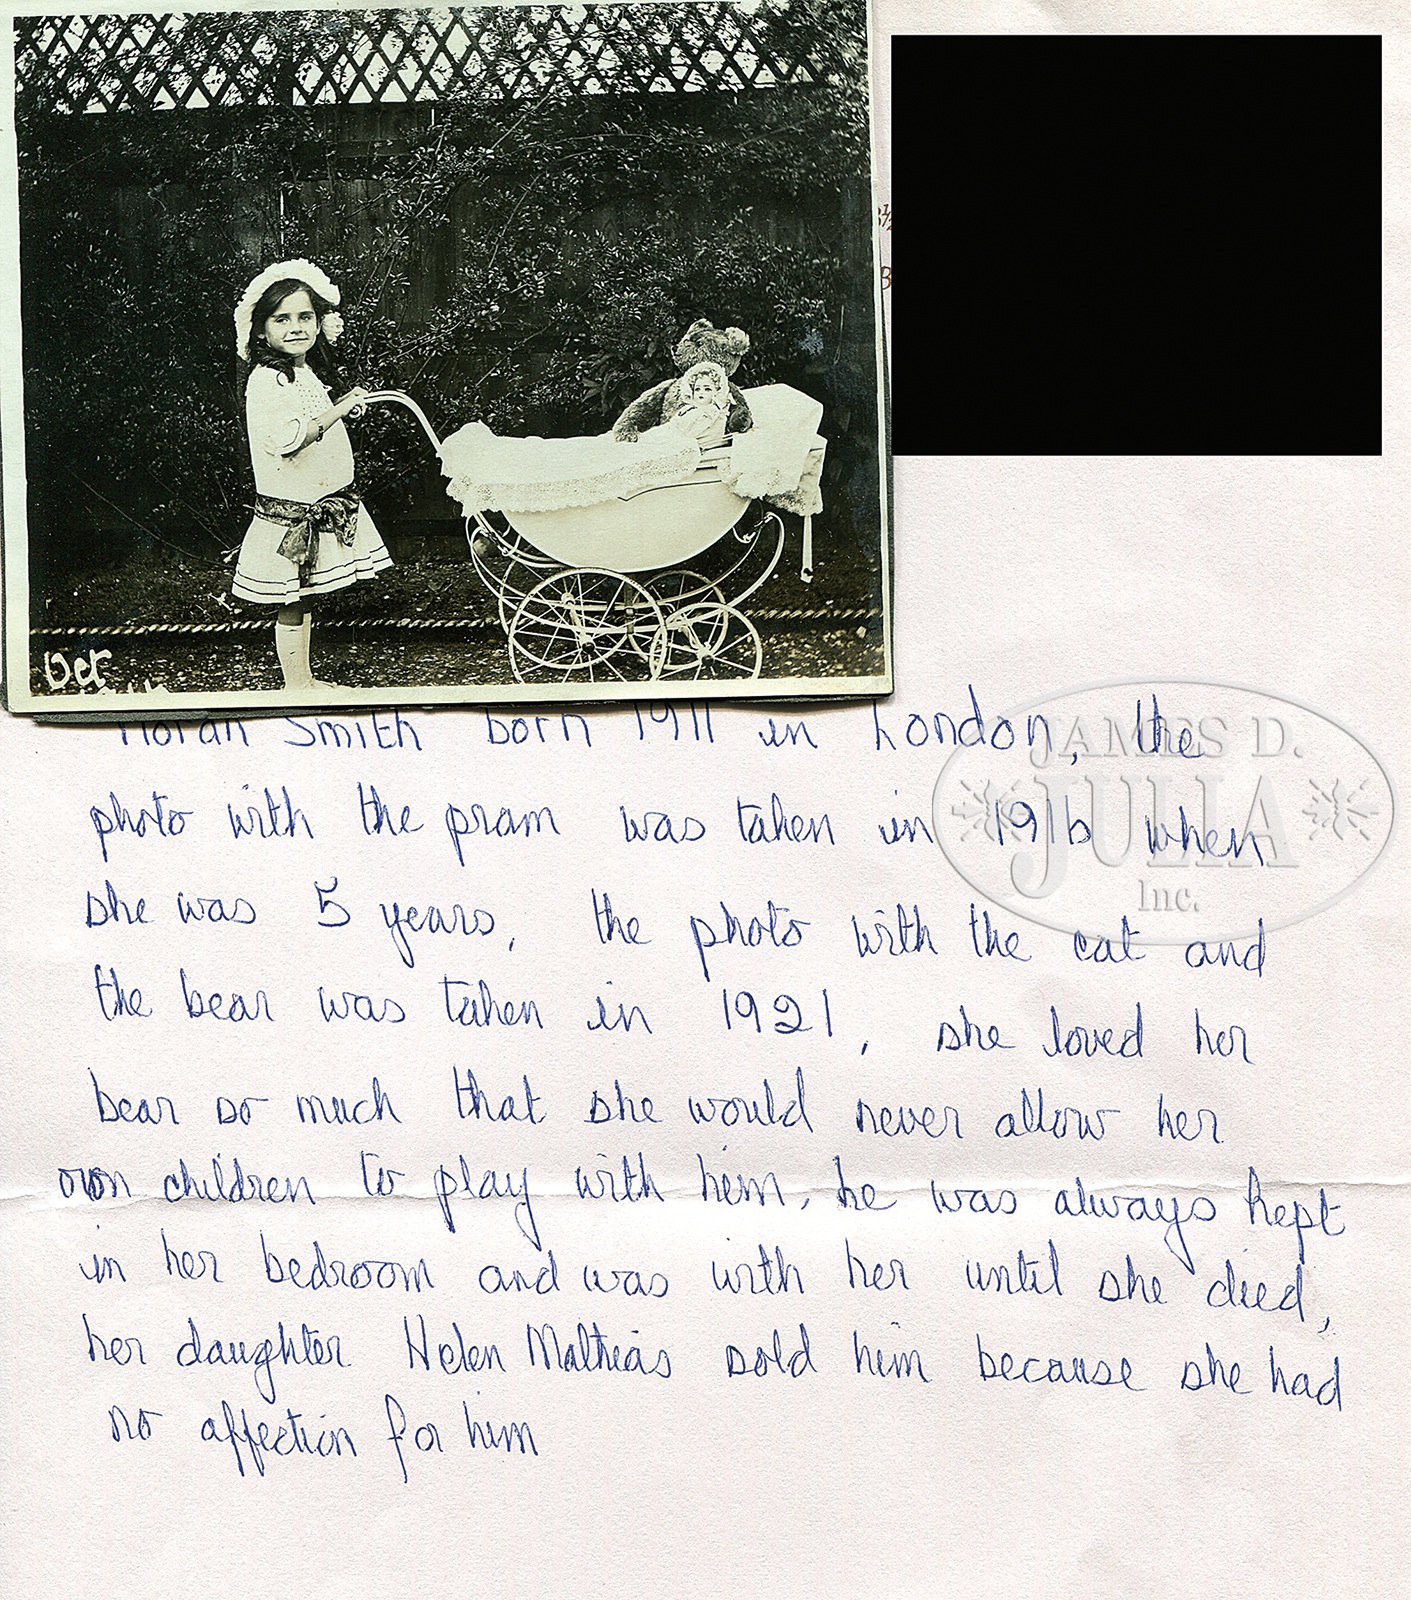 Oct
Smith born 1911 in London, the
photo with the pram was taken in 1916 when
she was 5 years, the photo with the cat and
the bear was taken in 1921, she loved her
bear so much that she would never allow her
own children to play with him, he was always kept
in her bedroom and was with her until she died,
her daughter Helen Mathias sold him because she had
no affection for him
JAMES D.
JULIA
Inc.